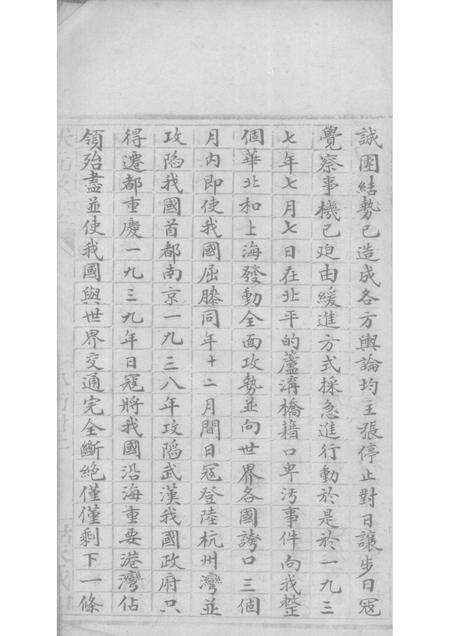 誠團結勢已造成各方輿論均主張停止對日讓步日寇
覺察事機已迫由緩進方式採急進行動於是於一九三
七年七月七日在北平的蘆溝橋藉口卑污事件向我整
個華北和上海發動全面攻勢並向世界各國誇口三個
月內即使我國屈膝同年十二月間日寇登陸杭州灣並
攻陷我國首都南京一九三八年攻陷武漢我國政府只
得遷都重慶一九三九年日寇將我國沿海重要港灣佔
領殆盡並使我國與世界交通完全斷絕僅僅剩下一條